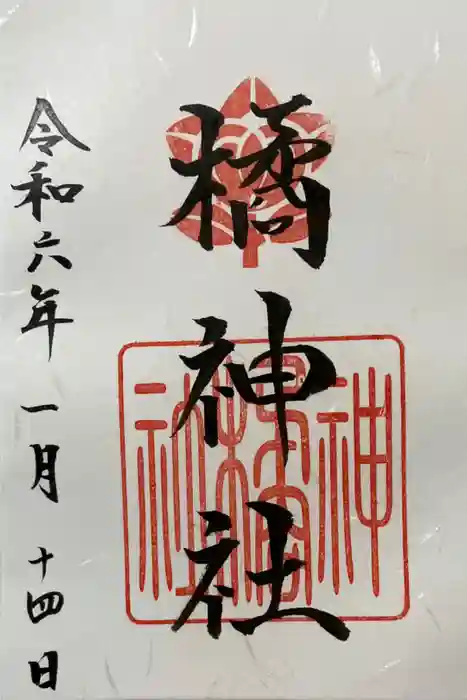 橘神社
令和六年 一月 十四日